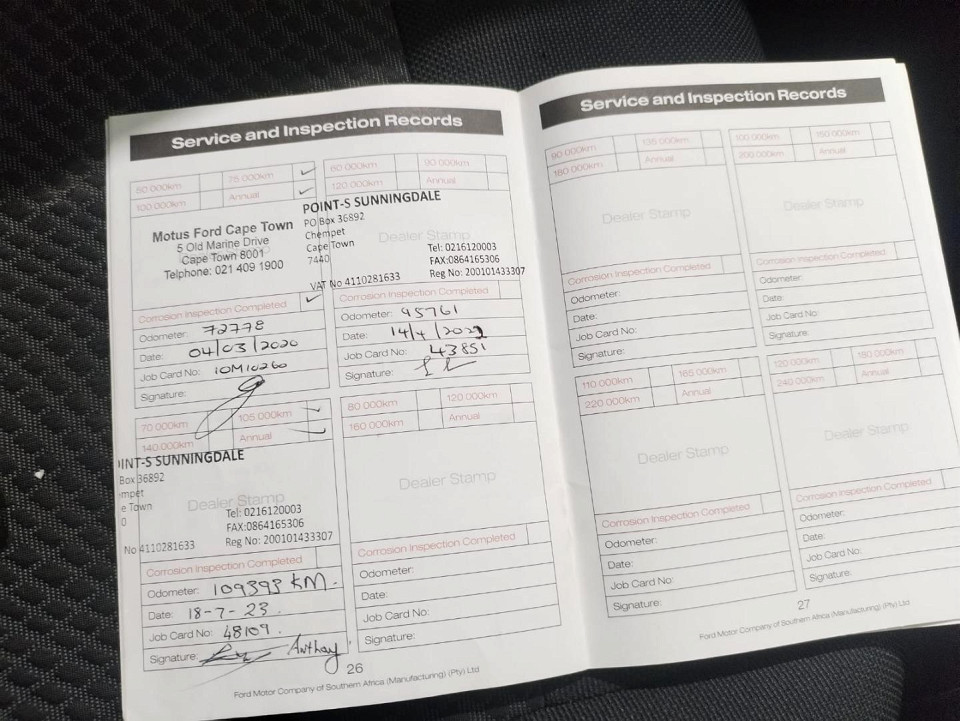 Service and Inspection Records
50 000km 75 000km ✓
100 000km Annual ✓
Motus Ford Cape Town
5 Old Marine Drive
Cape Town 8001
Telphone: 021 409 1900
Corrosion Inspection Completed ✓
Odometer: 72778
Date: 04/03/2020
Job Card No: IOM10260
Signature:
60 000km 90 000km
120 000km Annual
POINT-S SUNNINGDALE
PO Box 36892
Chempet
Cape Town
7440
Dealer Stamp
Tel: 0216120003
FAX:0864165306
Reg No: 200101433307
VAT No 4110281633
Corrosion Inspection Completed
Odometer: 95761
Date: 14/4/2022
Job Card No: 43851
Signature:
70 000km 105 000km
140 000km Annual
INT-S SUNNINGDALE
Box 36892
mpet
e Town
0
Dealer Stamp
Tel: 0216120003
FAX:0864165306
Reg No: 200101433307
No 4110281633
Corrosion Inspection Completed
Odometer: 109393 KM
Date: 18-7-23
Job Card No: 48109
Signature: Anthony
80 000km 120 000km
160 000km Annual
Dealer Stamp
Corrosion Inspection Completed
Odometer:
Date:
Job Card No:
Signature:
26
Ford Motor Company of Southern Africa (Manufacturing) (Pty) Ltd
Service and Inspection Records
90 000km 135 000km
180 000km Annual
Dealer Stamp
Corrosion Inspection Completed
Odometer:
Date:
Job Card No:
Signature:
100 000km 150 000km
200 000km Annual
Dealer Stamp
Corrosion Inspection Completed
Odometer:
Date:
Job Card No:
Signature:
110 000km 165 000km
220 000km Annual
Dealer Stamp
Corrosion Inspection Completed
Odometer:
Date:
Job Card No:
Signature:
120 000km 180 000km
240 000km Annual
Dealer Stamp
Corrosion Inspection Completed
Odometer:
Date:
Job Card No:
Signature:
27
Ford Motor Company of Southern Africa (Manufacturing) (Pty) Ltd